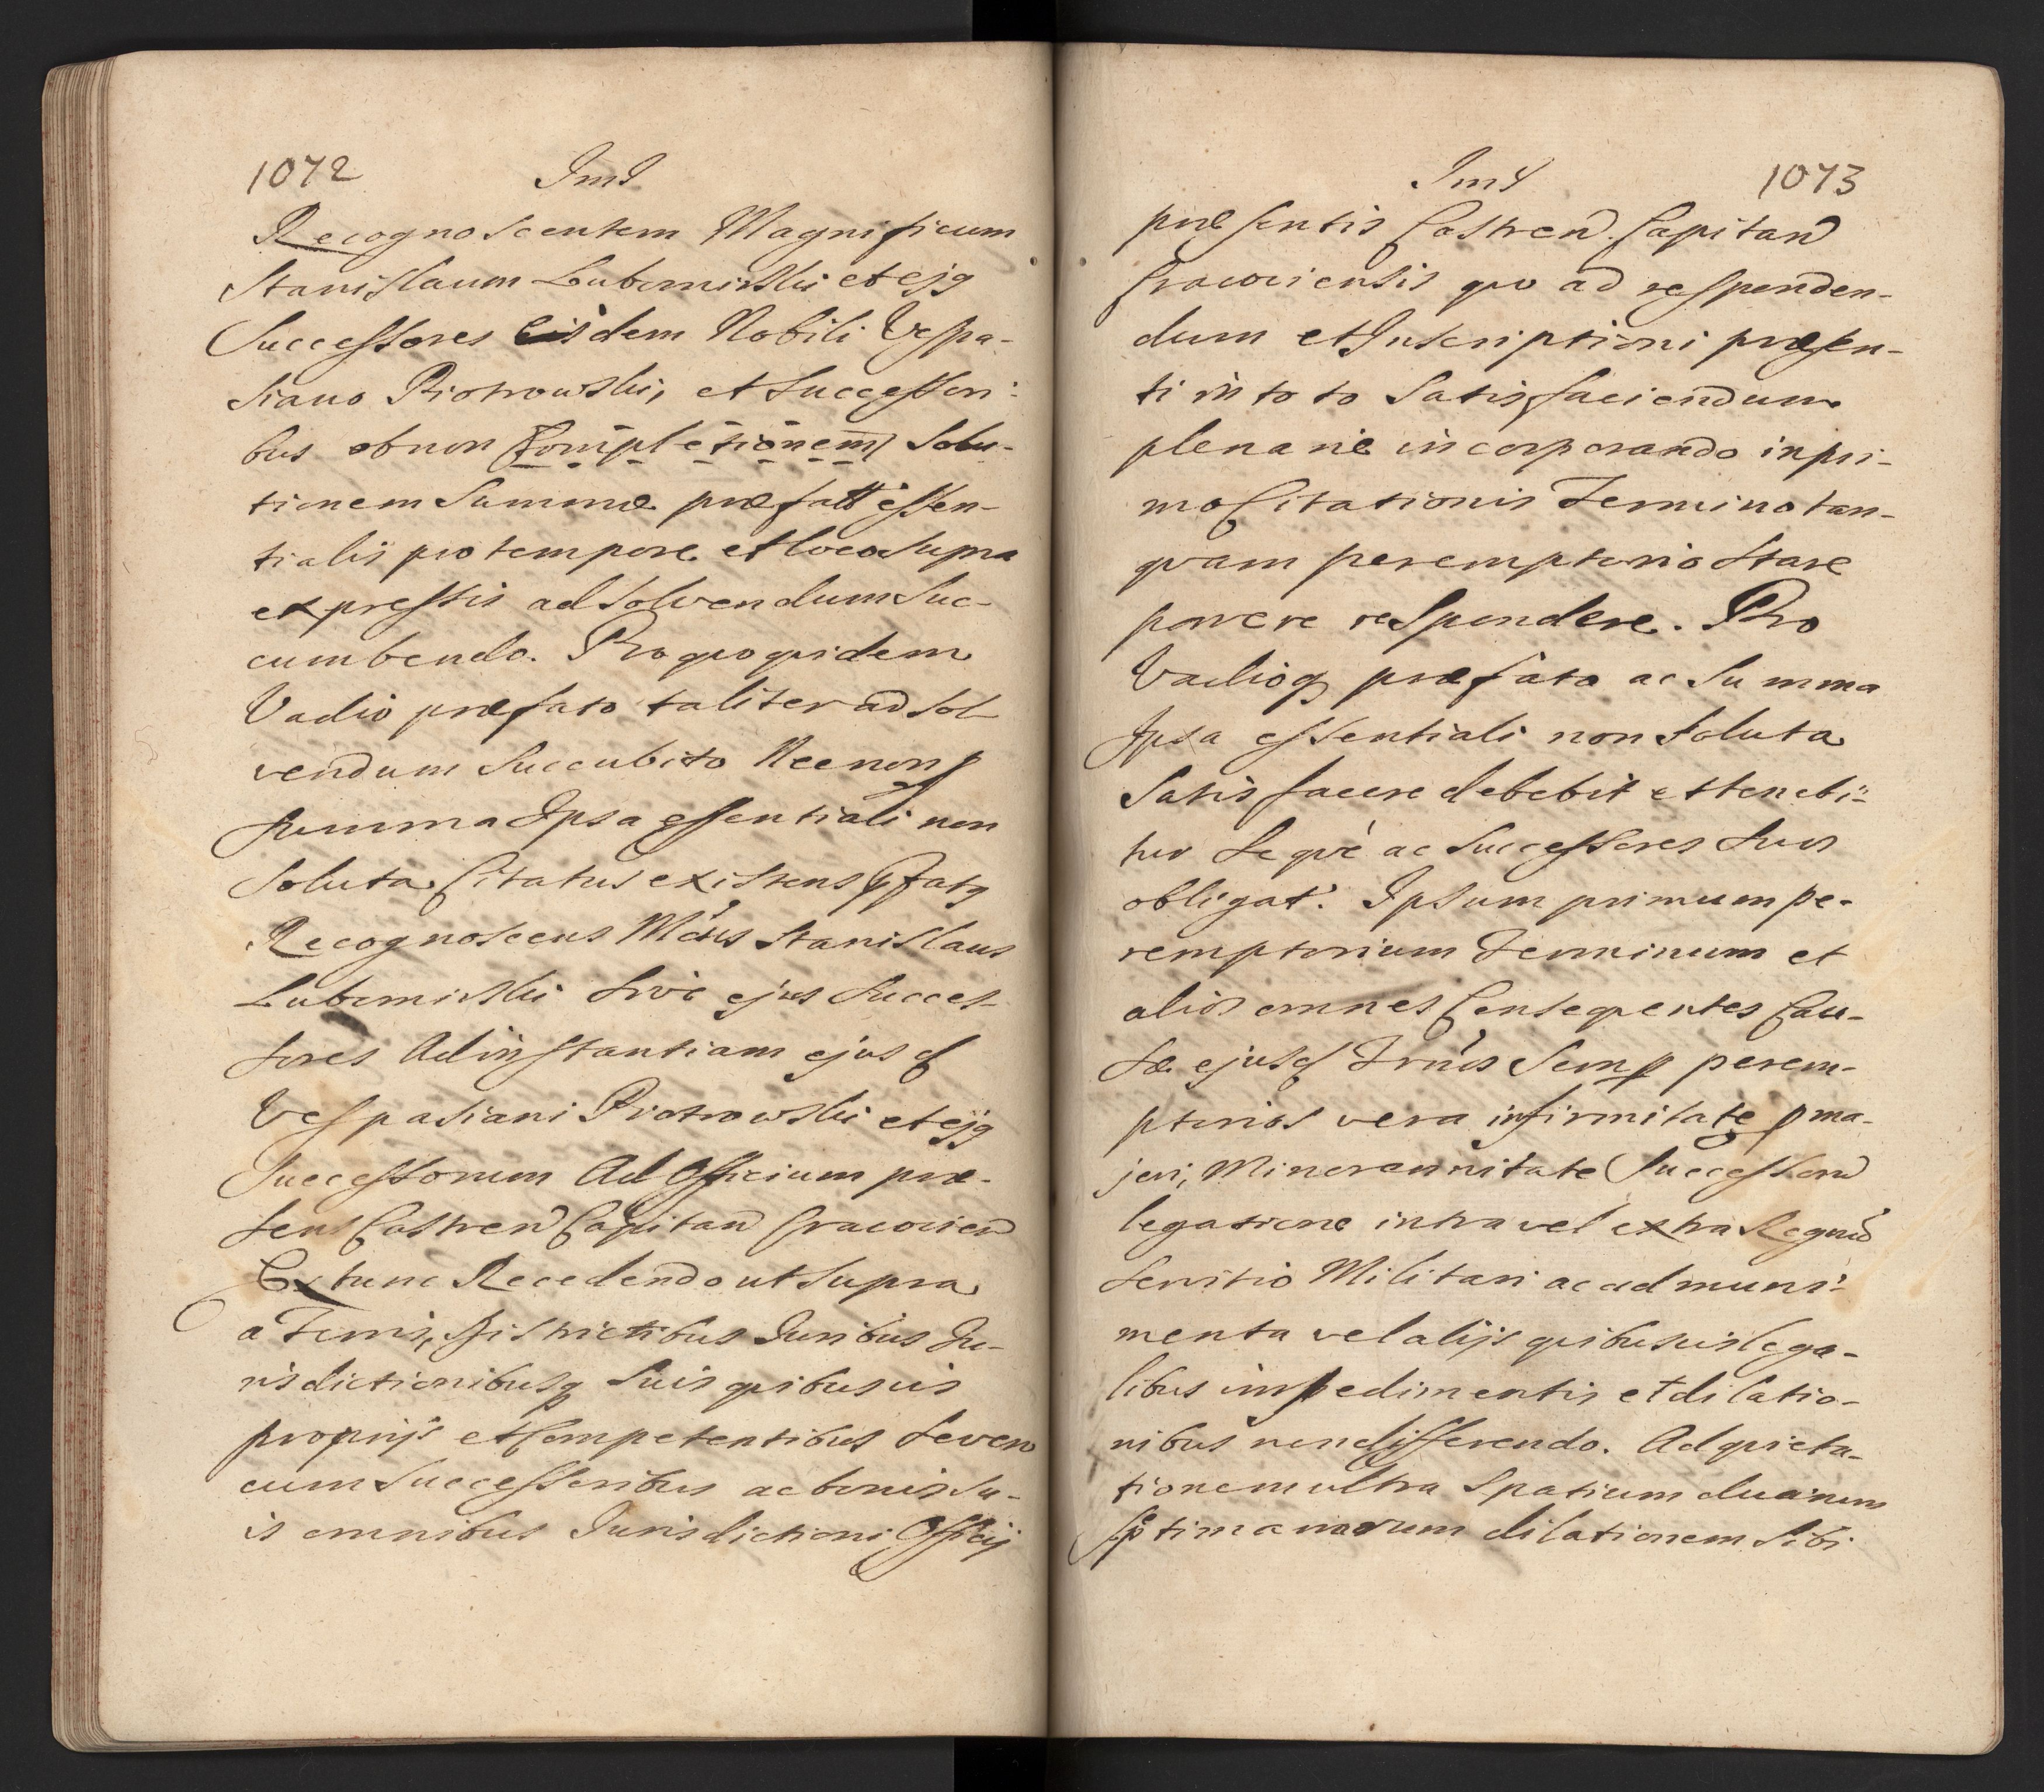 1072 Ind
Recognoscentem Magnificum
Stanislaum Lubomirski et ejq
Successores Eisdem Nobili Vespa-
siano Piotrowski, et Successori-
bus ob non Completionem Solu-
tionem Summæ præfatt essen-
tialis pro tempore et loco supra
expressis ad solvendum suc-
cumbendo. Pro quo quidem
Vadio præfato taliter ad sol-
vendum succubito Necnon p
summa Ipsa essentiali non
soluta Citatus existens pfatq
Recognoscens Mcus Stanislaus
Lubomirski sive ejus succes-
sores Ad instantiam ejusd
Vespasiani Piotrowski et ejq
Successorum Ad Officium præ-
sens Castren Capitan Cracovien
Extunc Recedendo ut supra
a Terris, Districtibus Juribus Ju-
risdictionibusq suis quibusvis
proprijs et Competentibus se vero
cum Successoribus ac bonis su-
is omnibus Jurisdictioni Officij
Ind 1073
præsentis Castren. Capitan
Cracoviensis quo ad responden-
dum et Inscriptioni præsen-
ti in toto Satisfaciendum
plenarie incorporando in pri-
mo Citationis Termino tan-
quam peremptorio stare
parere respondere. Pro
Vadioq præfato ac Summa
Ipsa essentiali non soluta
Satisfacere debebit et tenebi-
tur seque ac Successores suos
obligat. Ipsum primum pe-
remptorium Terminum et
alios omnes Consequentes Cau-
sæ ejusd Trnos Semp perem-
ptorios vera infirmitate p ma-
jori, Minorennitate Successorum
legatione intra vel extra Regnu
servitio Militari ac ad muni-
menta vel alijs quibusvis lega-
libus impedimentis et dilatio-
nibus non differendo. Ad quieta-
tionem ultra Spatium duarum
Septimanarum dilationem sibi